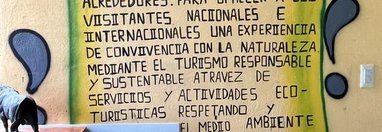 ALREDEDORES. PARA OFRECER A LOS
VIISITANTES NACIONALES E
INTERNACIONALES UNA EXPERIENCIA
DE CONVIIVENCIA CON LA NATURALEZA.
MEDIANTE EL TURISMO RESPONSABLE
Y SUSTENTABLE ATRAVEZ DE
SERVICIOS Y ACTIVIDADES ECO-
TURIISTICAS RESPETANDO Y
EL MEDIO AMBIENTE